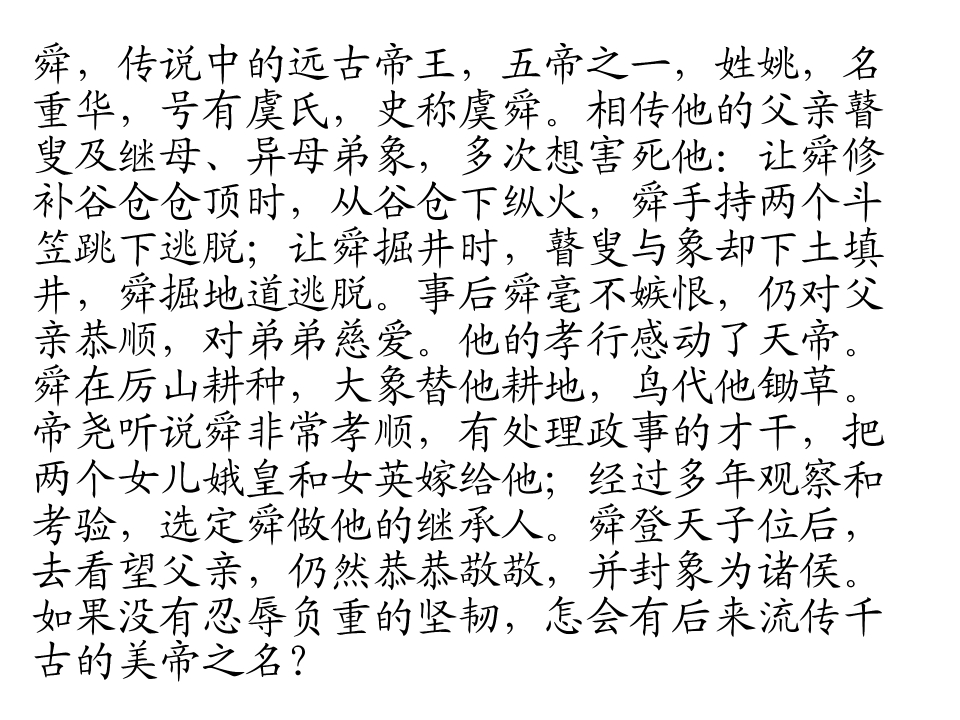 舜，传说中的远古帝王，五帝之一，姓姚，名
重华，号有虞氏，史称虞舜。相传他的父亲瞽
叟及继母、异母弟象，多次想害死他：让舜修
补谷仓仓顶时，从谷仓下纵火，舜手持两个斗
笠跳下逃脱；让舜掘井时，瞽叟与象却下土填
井，舜掘地道逃脱。事后舜毫不嫉恨，仍对父
亲恭顺，对弟弟慈爱。他的孝行感动了天帝。
舜在厉山耕种，大象替他耕地，鸟代他锄草。
帝尧听说舜非常孝顺，有处理政事的才干，把
两个女儿娥皇和女英嫁给他；经过多年观察和
考验，选定舜做他的继承人。舜登天子位后，
去看望父亲，仍然恭恭敬敬，并封象为诸侯。
如果没有忍辱负重的坚韧，怎会有后来流传千
古的美帝之名？